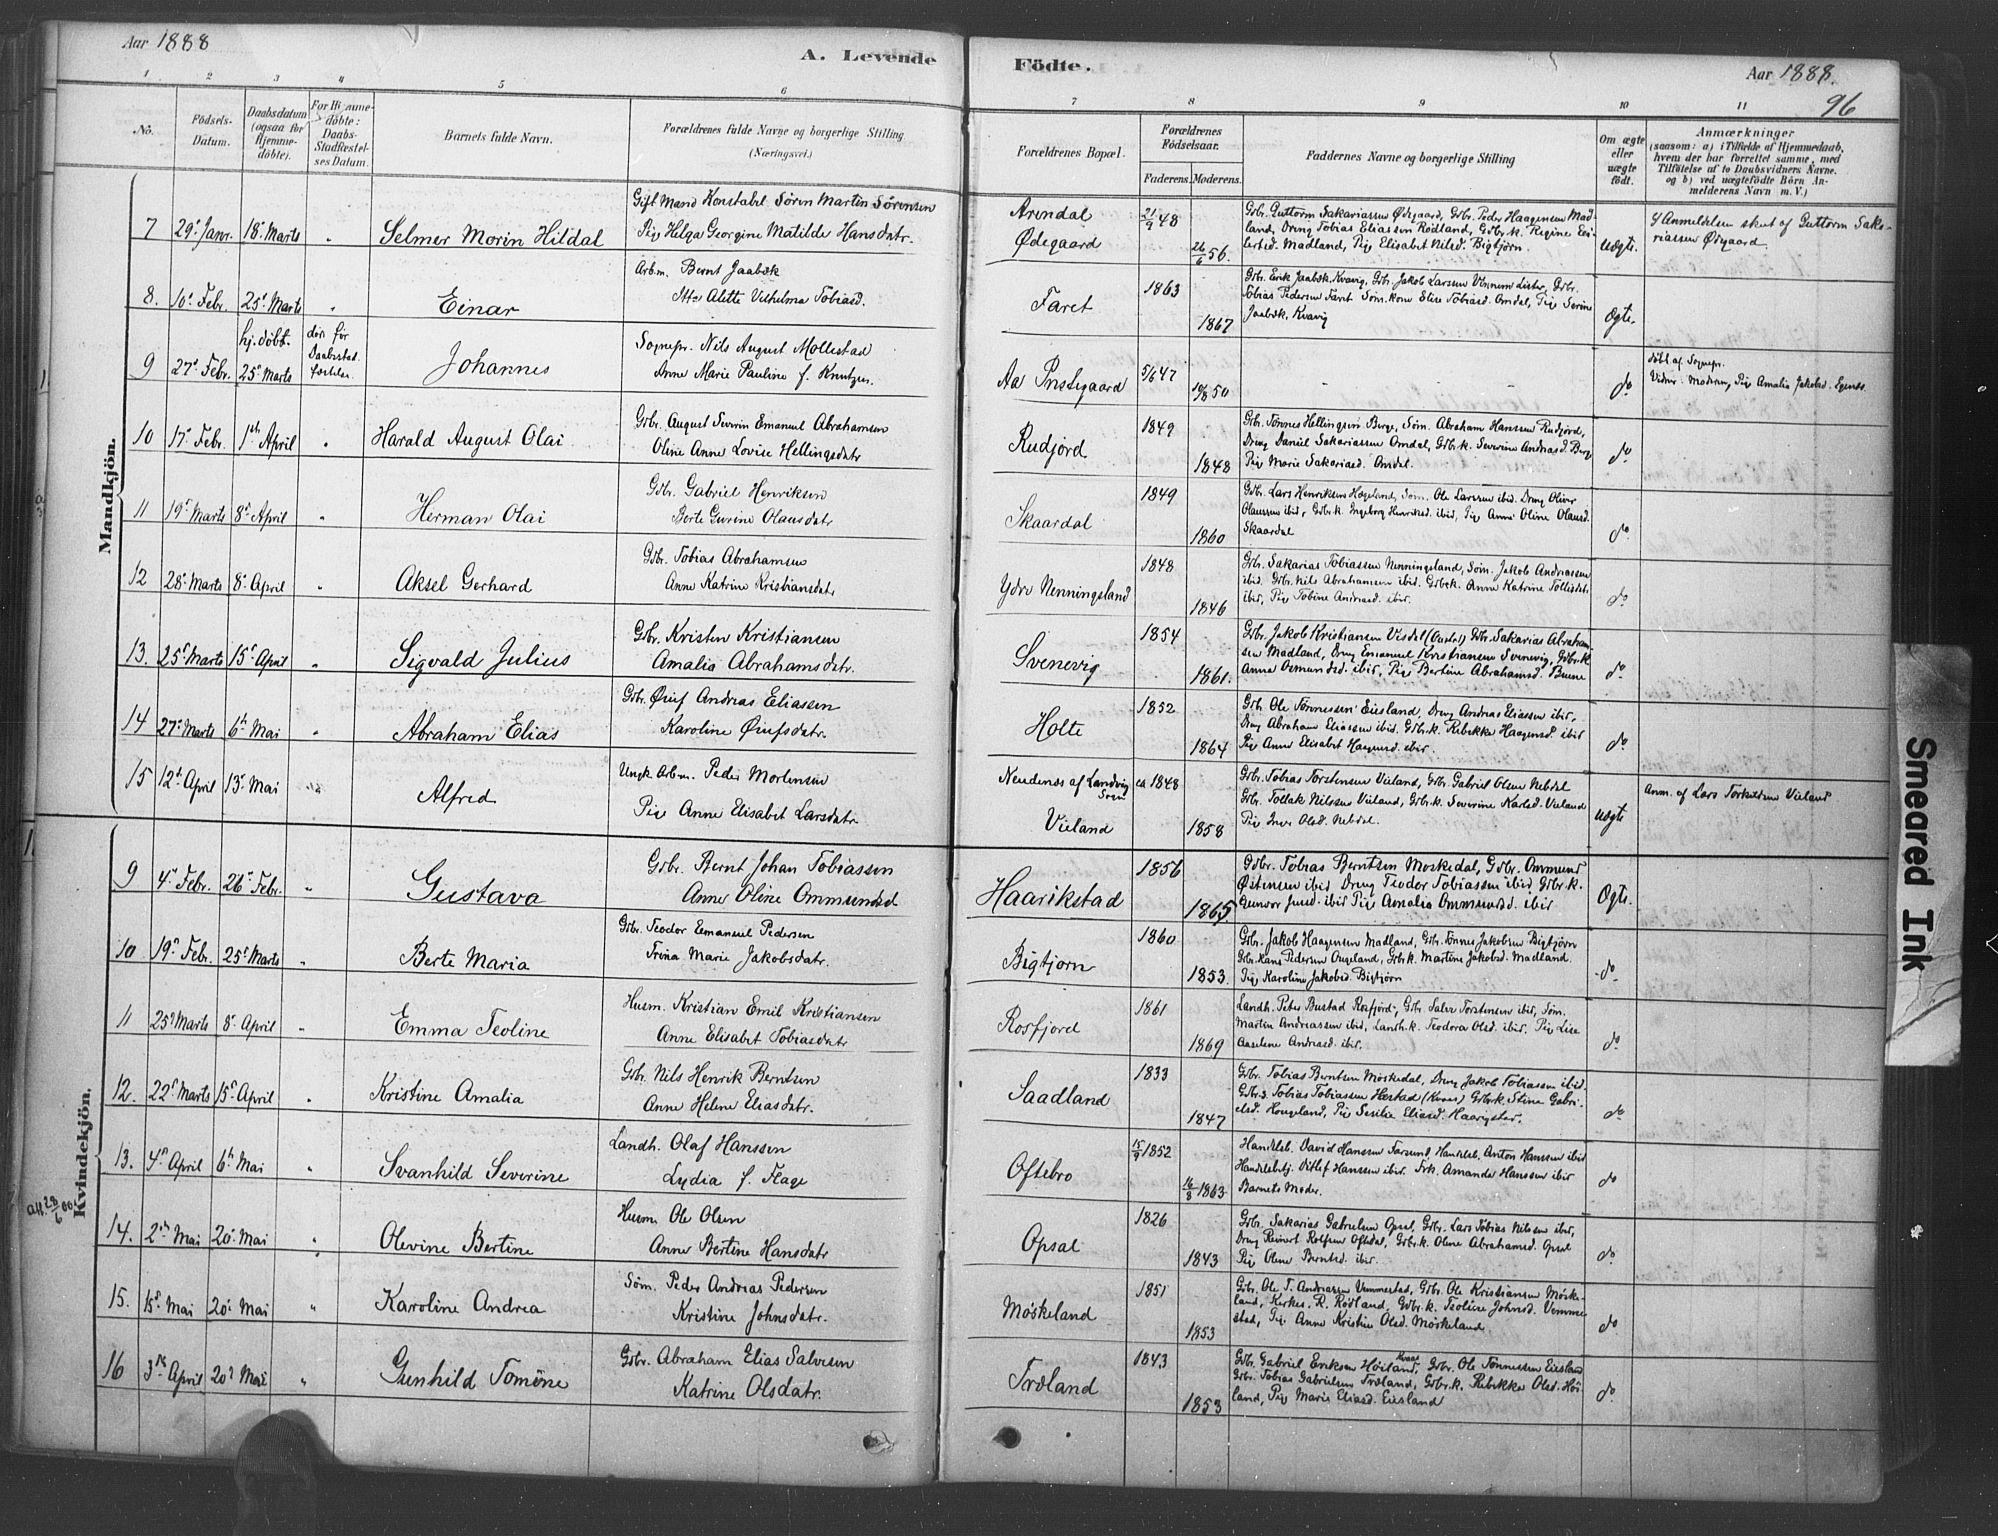 Aar 1888
A. Levende Födte.
Aar 1888.
96
1 2 3 4 5 6 7 8 9 10 11
No.
Födsels-Datum.
Daabsdatum (ogsaa for Hjemmedöbte).
For Hjemmedöbte: Daabs-Stadfæstelses Datum.
Barnets fulde Navn.
Forældrenes fulde Navne og borgerlige Stilling. (Næringsvei.)
Forældrenes Bopæl.
Forældrenes Födselsaar.
Faderens. Moderens.
Faddernes Navne og borgerlige Stilling
Om ægte eller uægte födt.
Anmærkninger
(saasom: a) i Tilfælde af Hjemmedaab, hvem der har forrettet samme, med Tilföielse af to Daabsvidners Navne, og b) ved uægtefödte Börn Anmelderens Navn m. V.)
Mandkjön.
7 29. Janr. 18. Marts
Selmer Morin Hildal
Gift Mand Konstabel Sören Martin Sörensen
Pig Helga Georgine Matilde Hansdatr.
Arendal
Ødegaard
21/9 48
26/6 56.
Gbr. Guttorm Sakariassen Ødegaard, Gbr. Peder Haagensen Madland, Dreng Tobias Eliassen Rødland, Gbr.k. Regine Eilertsd. Madland, Pig Elisabet Nilsd. Bigtjörn.
Uægte.
Anmeldelsen skeet af Guttorm Sakariassen Ødegaard
8. 10. Febr. 25. Marts
Einar
Arbm. Bernt Jaabæk
Alette Vilhelma Tobiasd.
Faret
1863
1867
Gbr. Erik Jaabæk Kvavig, Gbr. Jakob Larsen Vennum Lister, Gbr. Tobias Pedersen Faret Söm.kone Elise Tobiasd. Omdal, Pig Sevrine Jaabæk, Kvavig
Ægte.
9 27. Febr. hj. döbt. 25. Marts
död før Daabsstadfestelse.
Johannes
Sognepr. Nils August Mollestad
Anne Marie Pauline f. Knutzen.
Aa Præstegaard
5/6 47
19/8 50
do
döbt af Sognepr.
Vidner: Moderen, Pig Amalia Jakobsd.
10 17. Febr. 1th April
Harald August Olai
Gbr. August Severin Emanuel Abrahamsen
Oline Anne Lovise Hellingsdatr
Rudjord
1849
1848
Gbr. Tönnes Hellingsen Berge, Söm. Abraham Hanssen Rudjord, Dreng Daniel Sakariassen Omdal, Gbr.k. Severine Andreasd. Berg Pig Marie Sakariasd. Omdal.
do
11 19. Marts 8. April
Herman Olai
Gbr. Gabriel Henriksen
Berte Gurine Olausdatr
Skaardal
1849
1860
Gbr. Lars Henriksen Hægeland, Söm. Ole Larssen ibid. Dreng Oliver Olaussen ibid, Gbr.k. Ingeborg Henriksd. ibid, Pig Anne Oline Olausd. Skaardal
do
12 28. Marts 8. April
Aksel Gerhard
Gbr. Tobias Abrahamsen
Anne Katrine Kristiansdatr
Ydre Nenningsland
1848
1846
Gbr. Sakarias Tobiassen Nenningsland, Söm. Jakob Andreassen ibid. Gbr. Nils Abrahamsen ibid. Gbr.k. Anne Katrine Tollisd. ibid, Pig Tobine Andreasd. ibid.
do
13. 25. Marts 15. April
Sigvald Julius
Gbr. Kristen Kristiansen
Amalia Abrahamsdatr.
Svenevig
1854
1861.
Gbr. Jakob Kristiansen Visdal (Austad) Gbr. Sakarias Abrahamsen Madland, Dreng Emanuel Kristiansen Svenevig, Gbr.k. Anne Osmundsd. ibid, Pig Bertine Abrahamsd. Buene
do
14 27. Marts 6th Mai
Abraham Elias
Gbr. Øuf Andreas Eliassen
Karoline Øufsdatr.
Holte
1852
1864
Gbr. Ole Tönnessen Eiesland, Dreng Andreas Eliassen ibid, Dreng Abraham Eliassen ibid. Gbr.k. Rebekka Haagensd. ibid Pig Anne Elisabet Haagensd. ibid.
do
15 12. April 13. Mai
Alfred
Ungk. Arbm. Peder Mortensen
Pig Anne Elisabet Larsdatr.
Neudenes af Landvig Sogn
Vieland
ca 1848
1858
Gbr. Tobias Torstensen Vieland, Gbr. Gabriel Olsen Nebdal Gbr. Tollak Nilssen Vieland, Gbr.k. Severine Karlsd. Vieland Pig Inger Olsd. Nebdal.
Uægte
Anm. af Lars Torkildsen Vieland
Kvindekjön.
9 4. Febr. 26. Febr.
Gustava
Gbr. Bernt Johan Tobiassen
Anne Oline Ommundsd
Haarikstad
1856
1865
Gbr. Tobias Berntsen Moskedal, Gbr. Ommund Østensen ibid Dreng Teodor Tobiassen ibid. Gbr.k. Gunvor Jensd. ibid Pig Amalia Ommundsd. ibid
Ægte.
10 19. Febr. 25. Marts
Berte Maria
Gbr. Teodor Emanuel Pedersen
Trina Marie Jakobsdatr.
Bigtjorn
1860
1853.
Gbr. Jakob Haagensen Madland, Gbr. Tönnes Jakobsen Bigtjörn Gbr. Hans Pedersen Augeland, Gbr.k. Martine Jakobsd. Madland. Pig Karoline Jakobsd. Bigtjörn
do
11 25. Marts 8. April
Emma Teoline
Husm. Kristian Emil Kristiansen
Anne Elisabet Tobiasdatr
Rosfjord
1861
1869
Landh. Peter Bustad Rosfjord, Gbr. Salve Torstensen ibid, Söm. Martin Andreassen ibid, Landh.k. Teodora Olsd. ibid, Pig Lise Aaselene Andreasd. ibid.
do
12. 22. Marts 15. April
Kristine Amalia
Gbr. Nils Henrik Berntsen
Anne Helene Eliasdatr.
Saadland
1833
1847
Gbr. Tobias Berntsen Möskedal, Dreng Jakob Tobiassen ibid. Gbr.s. Tobias Tobiassen Hestad (Kvaas) Gbr.k. Stina Gabrielsd. Hougeland, Pig Sesilie Eliasd. Haarigstad.
do
13. 4. April 6th Mai
Svanhild Severine
Landh. Olaf Hanssen
Lydia f. Flage
Oftebro
15/9 1852
16/3 1863
Handelsb. David Hanssen Farsund, Handelsb. Anton Hanssen ibid Handelsbtj. Ditlef Hanssen ibid. Frk. Amanda Hanssen ibid Barnets Moder.
do
Att. 28/6 00
14. 2den Mai 20. Mai
Olevine Bertine
Husm. Ole Olsen
Anne Bertine Hansdatr
Opsal
1826
1843
Gbr. Sakarias Gabrielsen Opsal, Gbr. Lars Tobias Nilssen ibid, Dreng Reinert Rolfsen Oftedal, Gbr.k. Oline Abrahamsd. Opsal Pig Oline Berntsd. ibid.
do
15. 15. Mai 20. Mai
Karoline Andrea
Söm. Peder Andreas Pedersen
Kristine Johnsdatr.
Möskeland
1851
1853
Gbr. Ole T. Andreassen Vemmestad, Gbr. Ole Kristiansen Möskeland, Kirkes. R. Rödland, Gbr.k. Teoline Johnsd. Vemmestad, Pig Anne Kristine Olsd. Möskeland
do
16 3. April 20. Mai
Gunhild Tomöne
Gbr. Abraham Elias Salvesen
Katrine Olsdatr.
Træland
1843
1853
Gbr. Gabriel Eriksen Höiland, Kvaas Gbr. Ole Tönnessen Eiesland Gbr. Tobias Gabrielsen Træland, Gbr.k. Rebekka Olsd. Höiland, Pig Marie Eliasd. Eiesland
do
Smeared Ink